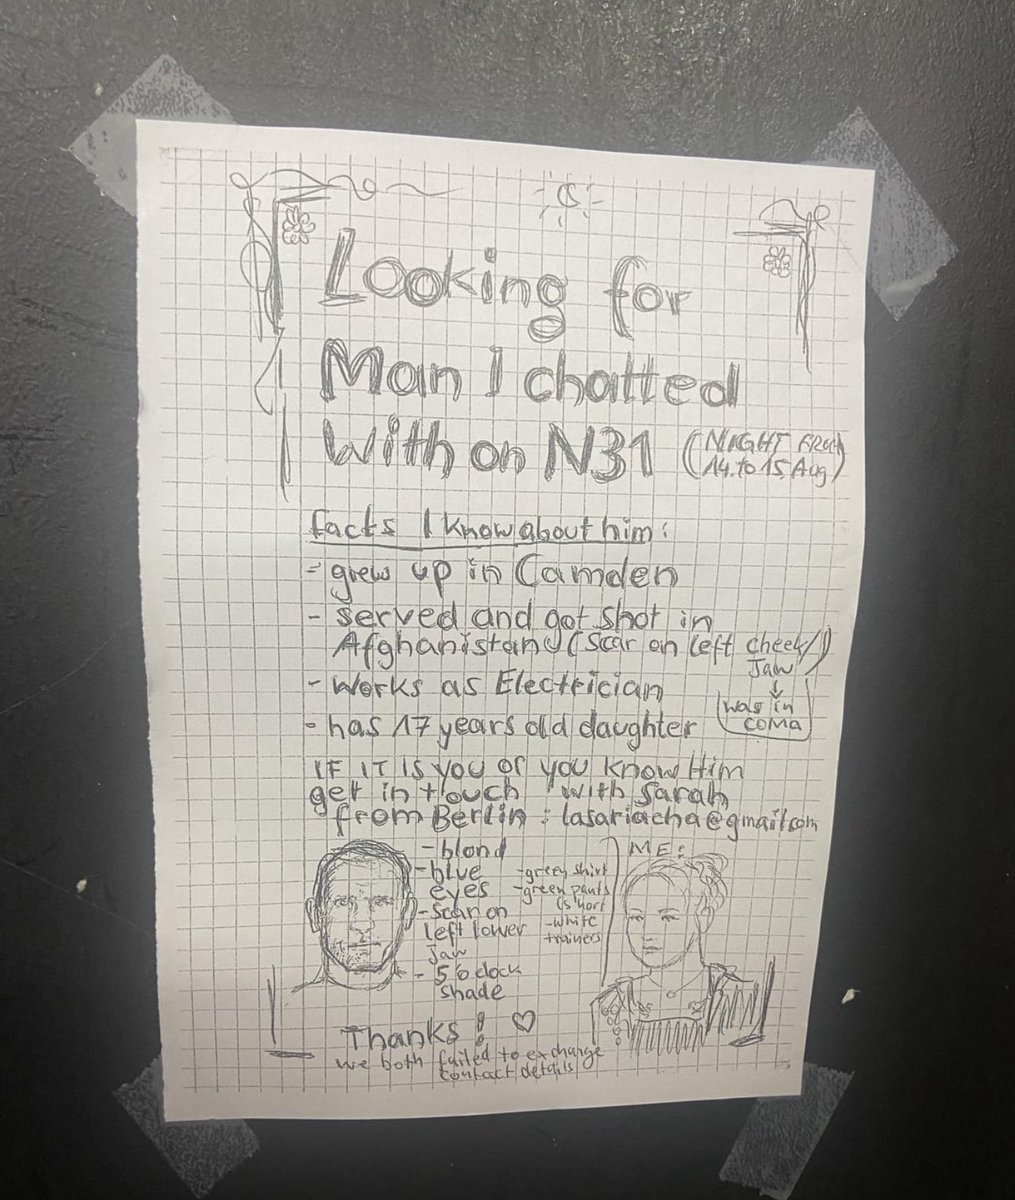 Looking for
Man I chatted
With on N31 (NIGHT FROM
14. to 15. Aug)
facts I know about him:
- grew up in Camden
- served and got shot in
Afghanistan (scar on left cheek/
Jaw)
- Works as Electrician
was in
COMA
- has 17 years old daughter
IF IT IS YOU or you know Him
get in touch with Sarah
from Berlin: lasariacha@gmail.com
- blond
- blue
eyes
- scar on
left lower
Jaw
- 5 o'clock
shade
- green shirt
- green pants
(short
- white
trainers
ME:
Thanks!
we both failed to exchange
contact details